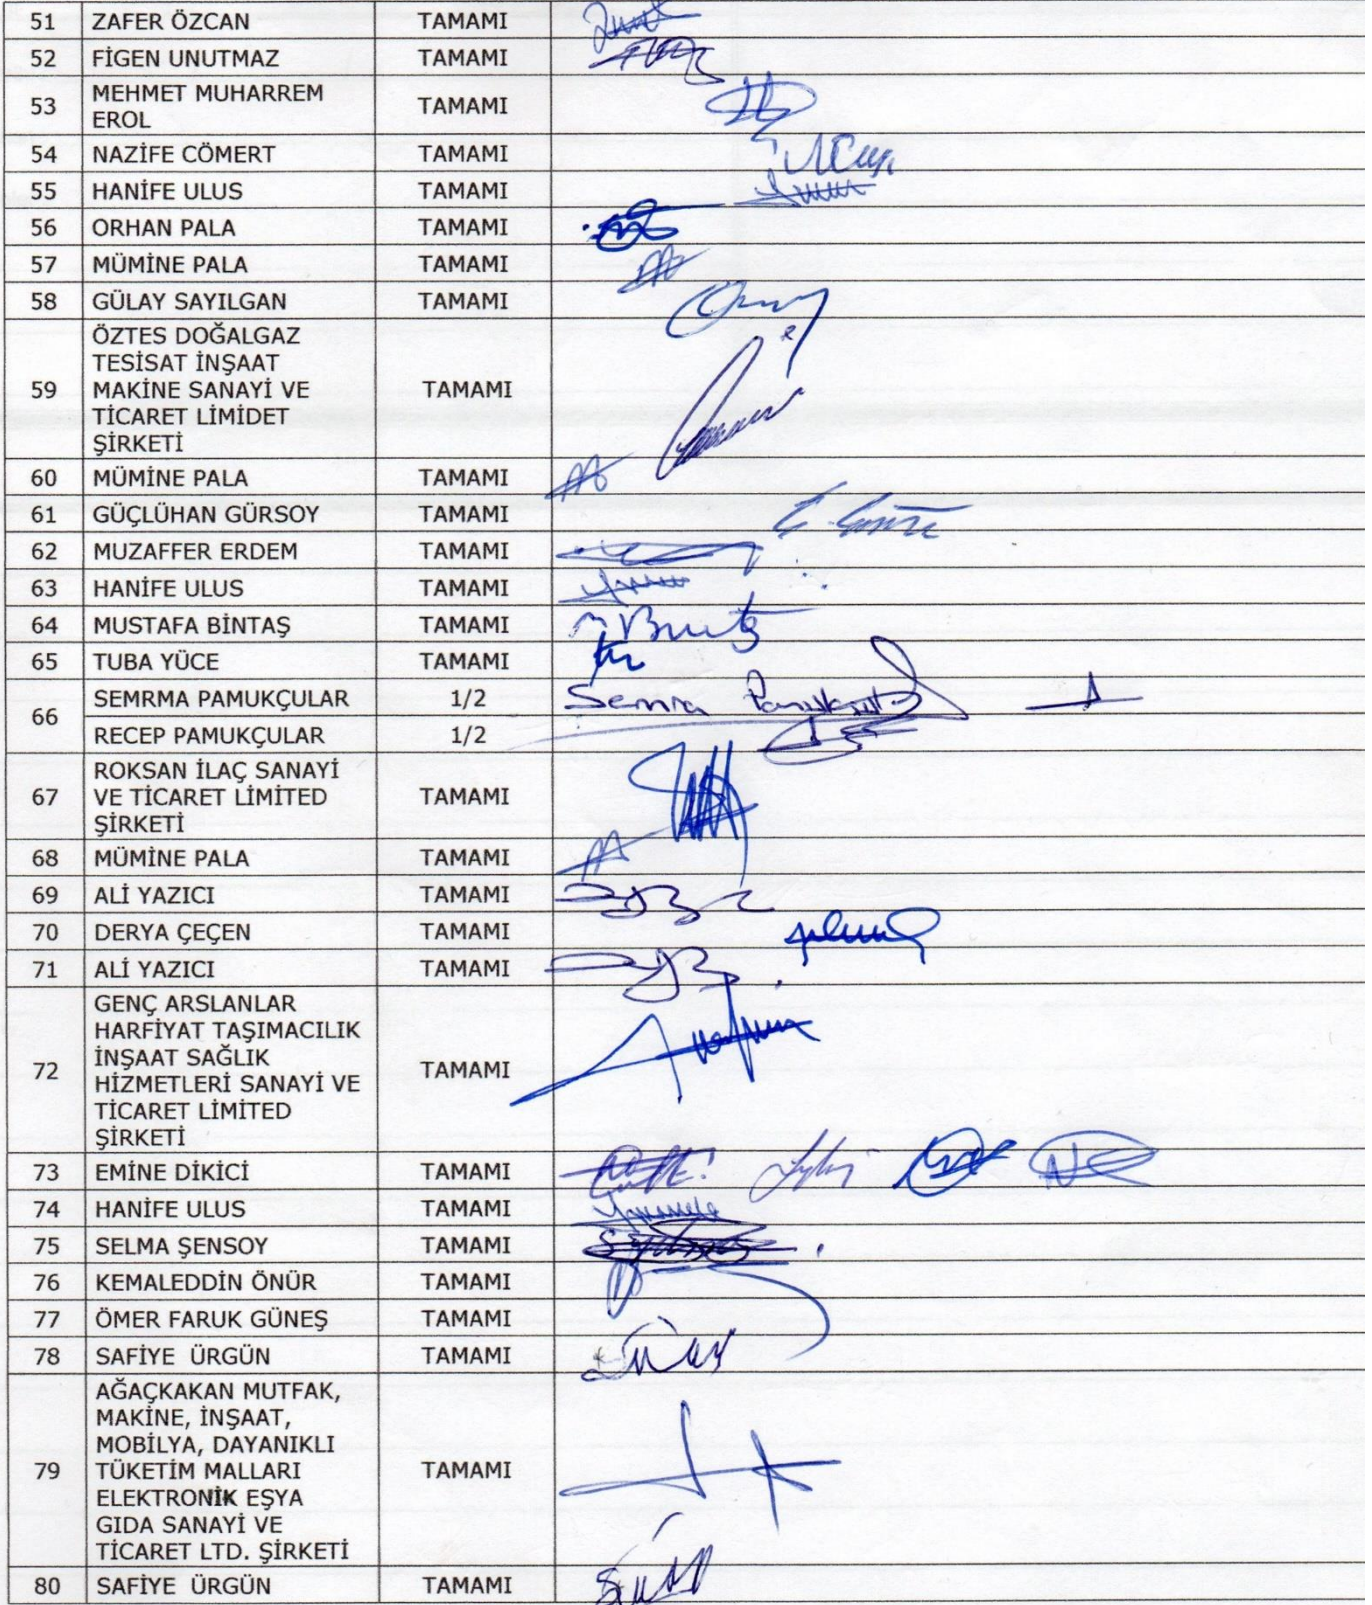 51 ZAFER ÖZCAN TAMAMI
52 FİGEN UNUTMAZ TAMAMI
53 MEHMET MUHARREM EROL TAMAMI
54 NAZİFE CÖMERT TAMAMI
55 HANİFE ULUS TAMAMI
56 ORHAN PALA TAMAMI
57 MÜMİNE PALA TAMAMI
58 GÜLAY SAYILGAN TAMAMI
ÖZTES DOĞALGAZ
TESİSAT İNŞAAT
59 MAKİNE SANAYİ VE TAMAMI
TİCARET LİMİDET
ŞİRKETİ
60 MÜMİNE PALA TAMAMI
61 GÜÇLÜHAN GÜRSOY TAMAMI
62 MUZAFFER ERDEM TAMAMI
63 HANİFE ULUS TAMAMI
64 MUSTAFA BİNTAŞ TAMAMI
65 TUBA YÜCE TAMAMI
66 SEMRMA PAMUKÇULAR 1/2 Semra
RECEP PAMUKÇULAR 1/2
ROKSAN İLAÇ SANAYİ
67 VE TİCARET LİMİTED TAMAMI
ŞİRKETİ
68 MÜMİNE PALA TAMAMI
69 ALİ YAZICI TAMAMI
70 DERYA ÇEÇEN TAMAMI
71 ALİ YAZICI TAMAMI
GENÇ ARSLANLAR
HARFİYAT TAŞIMACILIK
İNŞAAT SAĞLIK
72 HİZMETLERİ SANAYİ VE TAMAMI
TİCARET LİMİTED
ŞİRKETİ
73 EMİNE DİKİCİ TAMAMI
74 HANİFE ULUS TAMAMI
75 SELMA ŞENSOY TAMAMI
76 KEMALEDDİN ÖNÜR TAMAMI
77 ÖMER FARUK GÜNEŞ TAMAMI
78 SAFİYE ÜRGÜN TAMAMI
AĞAÇKAKAN MUTFAK,
MAKİNE, İNŞAAT,
MOBİLYA, DAYANIKLI
79 TÜKETİM MALLARI TAMAMI
ELEKTRONİK EŞYA
GIDA SANAYİ VE
TİCARET LTD. ŞİRKETİ
80 SAFİYE ÜRGÜN TAMAMI